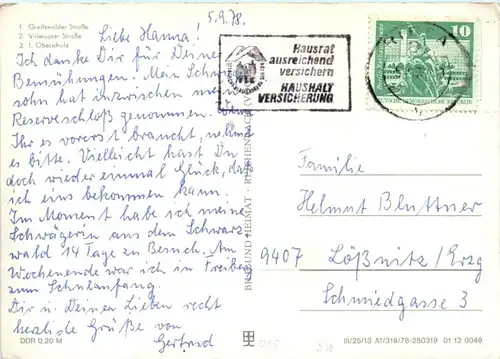 1. Greifswalder Straße
2. Villeruper Straße
3. 1. Oberschule
5.9.78.
Liebe Hanna!
Ich danke Dir für Deine
Bemühungen. Mein Schwie
sohn hat inzwischen mein
Reserveschloß genommen. Wenn
Ihr es vorerst braucht, nehmt
es bitte. Vielleicht hast Du
doch wieder einmal Glück, daß
ich eins bekommen kann.
Im Moment habe ich meine
Schwägerin aus dem Schwarz
wald 14 Tage zu Besuch. Am
Wochenende war ich in Freiberg
zum Schulanfang.
Dir u. Deinen Lieben recht
herzliche Grüße von
Gertrud
DDR 0,20 M
Hausrat
ausreichend
versichern
HAUSHALT
VERSICHERUNG
10
DEUTSCHE DEMOKRATISCHE REPUBLIK
BILD UND HEIMAT REICHENBACH (V
Familie
Helmut Bluttner
9407 Lößnitz/Erzg
Schmiedgasse 3
III/25/13 A1/319/78-280319 01 12 0049